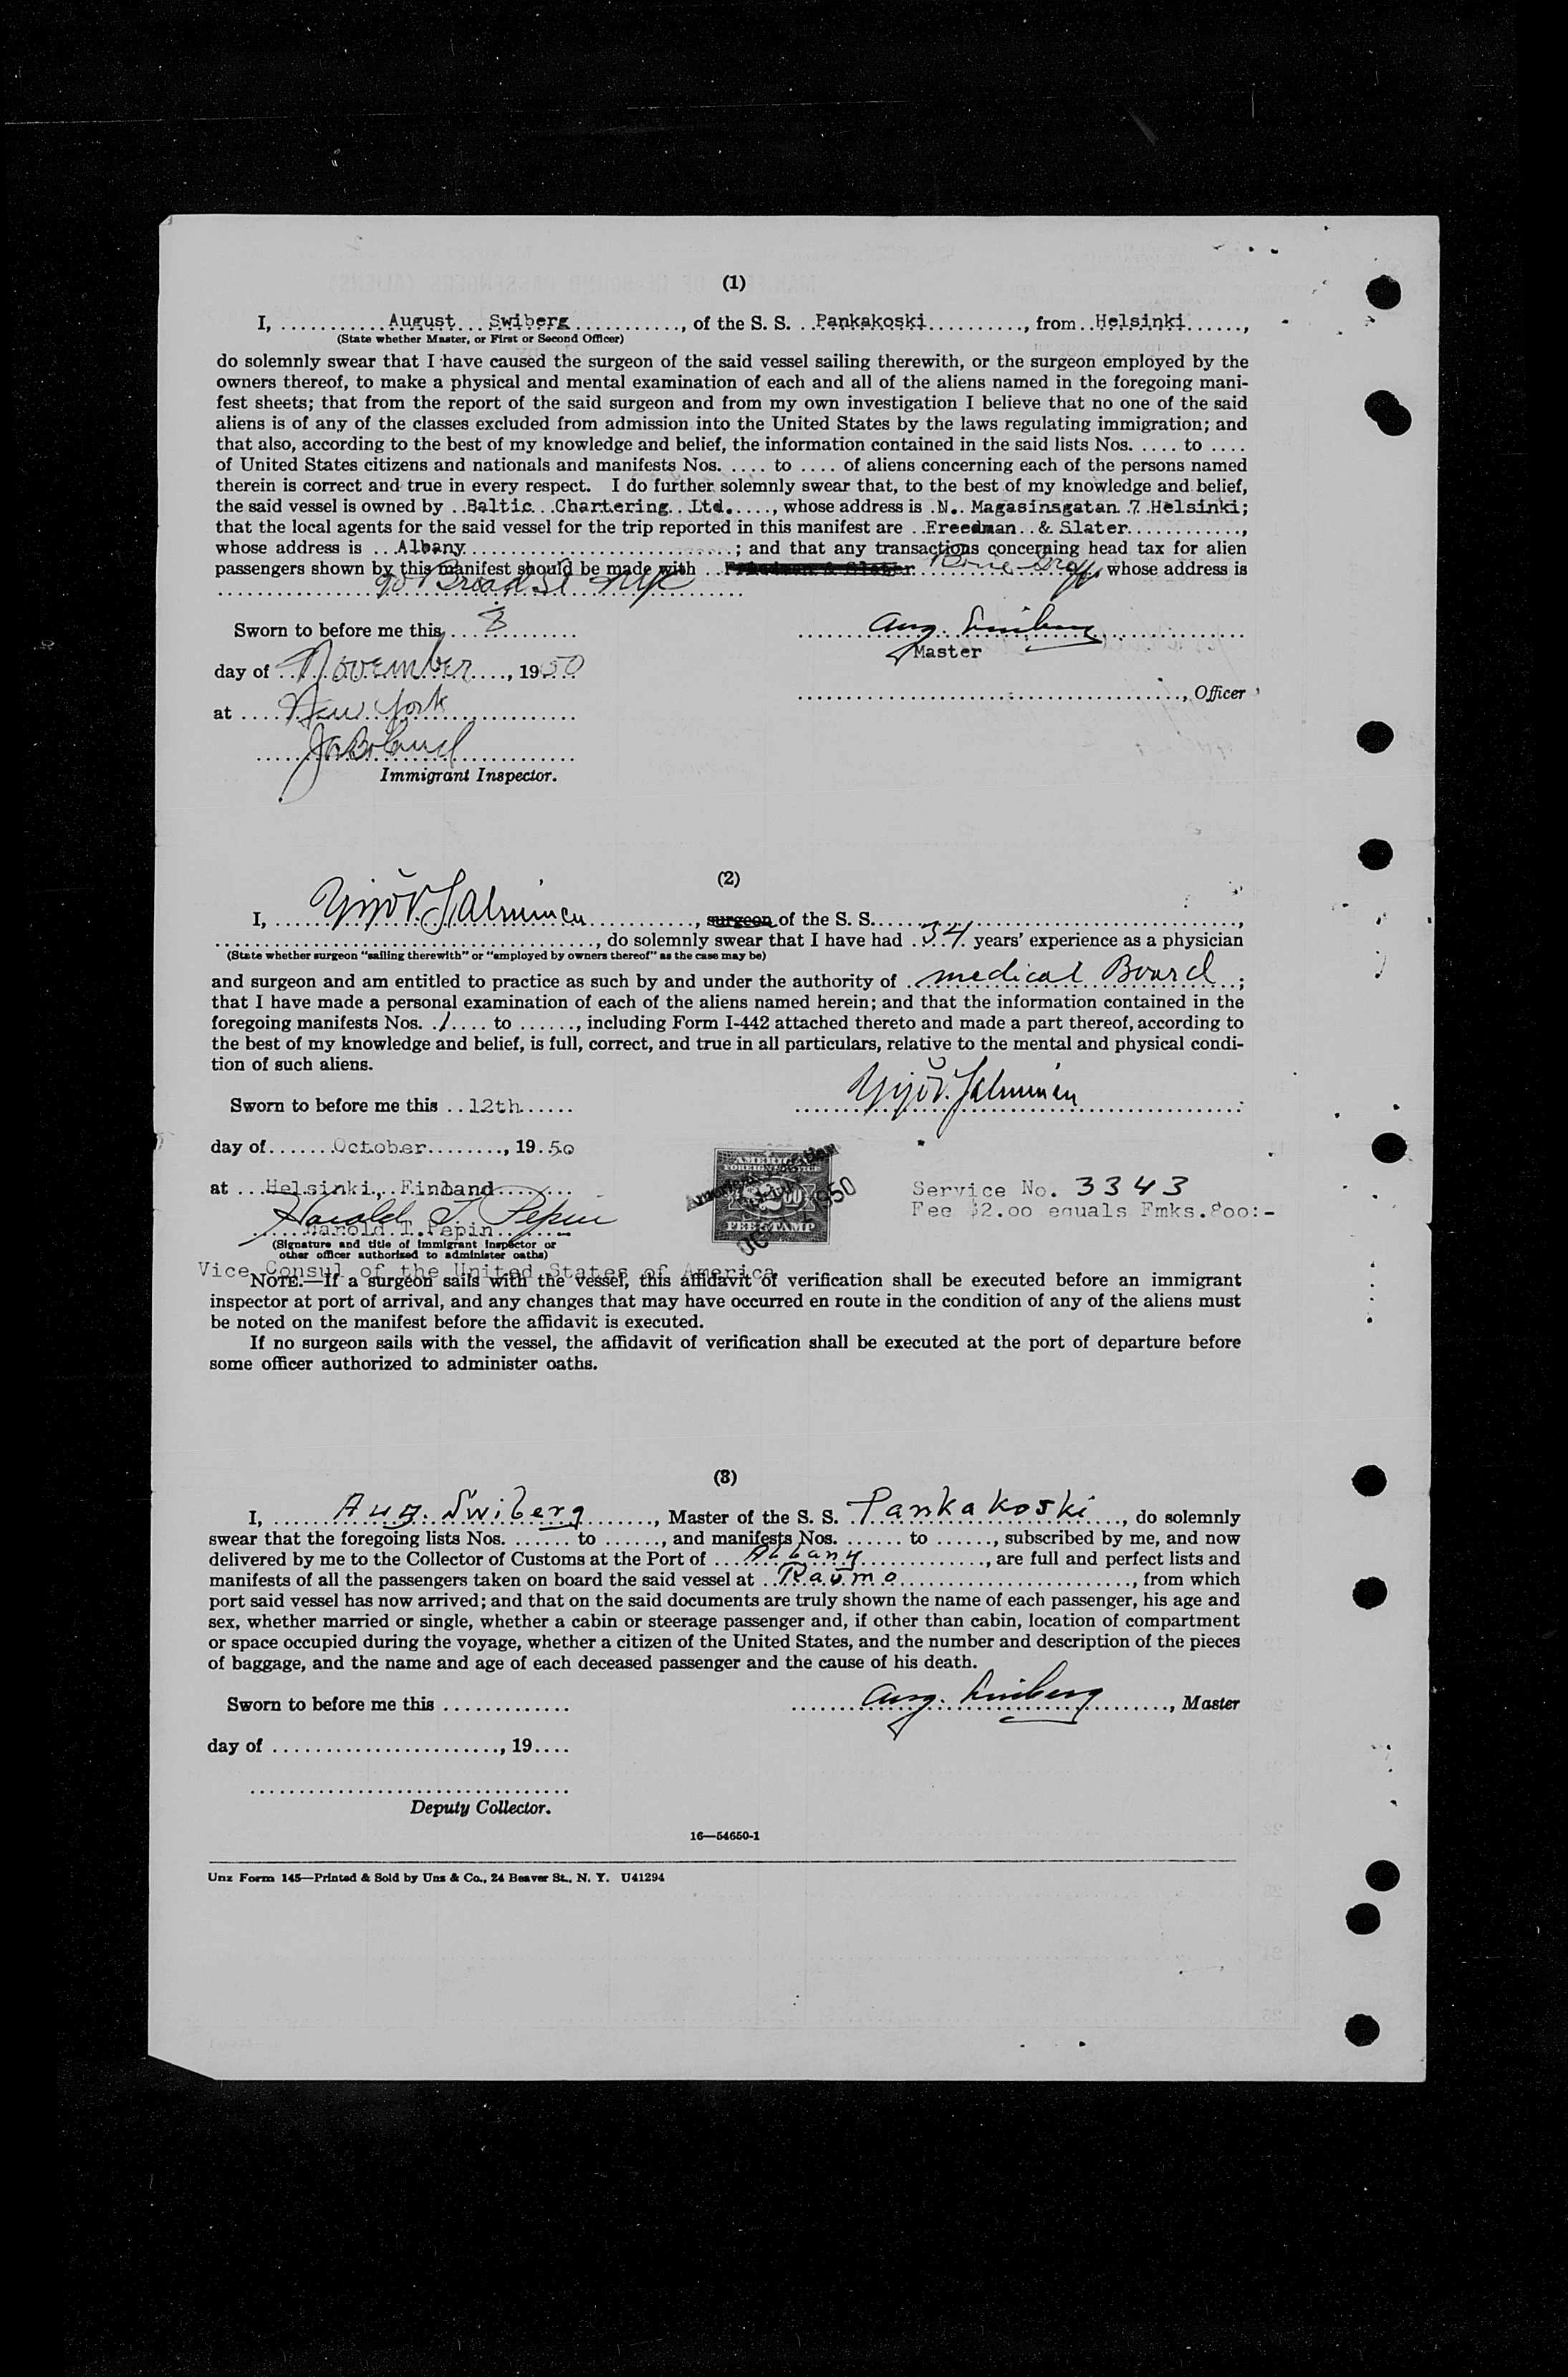 (1)
I, August Swiberg, of the S. S. Pankakoski, from Helsinki,
(State whether Master, or First or Second Officer)
do solemnly swear that I have caused the surgeon of the said vessel sailing therewith, or the surgeon employed by the
owners thereof, to make a physical and mental examination of each and all of the aliens named in the foregoing mani-
fest sheets; that from the report of the said surgeon and from my own investigation I believe that no one of the said
aliens is of any of the classes excluded from admission into the United States by the laws regulating immigration; and
that also, according to the best of my knowledge and belief, the information contained in the said lists Nos. .... to ....
of United States citizens and nationals and manifests Nos. .... to .... of aliens concerning each of the persons named
therein is correct and true in every respect. I do further solemnly swear that, to the best of my knowledge and belief,
the said vessel is owned by Baltic Chartering Ltd., whose address is N. Magasinsgatan 7 Helsinki;
that the local agents for the said vessel for the trip reported in this manifest are Freedman & Slater,
whose address is Albany; and that any transactions concerning head tax for alien
passengers shown by this manifest should be made with Friedman & Slater whose address is
90 Broad St NYC
Sworn to before me this 8
Aug. Swiberg
Master
day of November, 1950
, Officer
at New York
Immigrant Inspector.
(2)
I, Yrjö V. Salminen, surgeon of the S. S. ,
, do solemnly swear that I have had 34 years' experience as a physician
(State whether surgeon "sailing therewith" or "employed by owners thereof" as the case may be)
and surgeon and am entitled to practice as such by and under the authority of medical Board;
that I have made a personal examination of each of the aliens named herein; and that the information contained in the
foregoing manifests Nos. 1 to ......, including Form I-442 attached thereto and made a part thereof, according to
the best of my knowledge and belief, is full, correct, and true in all particulars, relative to the mental and physical condi-
tion of such aliens.
Yrjö V. Salminen
Sworn to before me this 12th
day of October, 1950
AMERICAN
FOREIGN SERVICE
FEE STAMP
at Helsinki, Finland
Service No. 3343
Fee $2.00 equals Fmks.800:-
Harold T. Pepin
Harold T. Pepin
(Signature and title of Immigrant Inspector or
other officer authorized to administer oaths)
Vice Consul of the United States of America
NOTE.—If a surgeon sails with the vessel, this affidavit of verification shall be executed before an immigrant
inspector at port of arrival, and any changes that may have occurred en route in the condition of any of the aliens must
be noted on the manifest before the affidavit is executed.
If no surgeon sails with the vessel, the affidavit of verification shall be executed at the port of departure before
some officer authorized to administer oaths.
(3)
I, Aug. Swiberg, Master of the S. S. Pankakoski, do solemnly
swear that the foregoing lists Nos. ....... to ......, and manifests Nos. ....... to ......, subscribed by me, and now
delivered by me to the Collector of Customs at the Port of Albany, are full and perfect lists and
manifests of all the passengers taken on board the said vessel at Raumo, from which
port said vessel has now arrived; and that on the said documents are truly shown the name of each passenger, his age and
sex, whether married or single, whether a cabin or steerage passenger and, if other than cabin, location of compartment
or space occupied during the voyage, whether a citizen of the United States, and the number and description of the pieces
of baggage, and the name and age of each deceased passenger and the cause of his death.
Sworn to before me this
Aug. Swiberg, Master
day of , 19....
Deputy Collector.
16—54650-1
Unz Form 145—Printed & Sold by Unz & Co., 24 Beaver St., N. Y. U41294